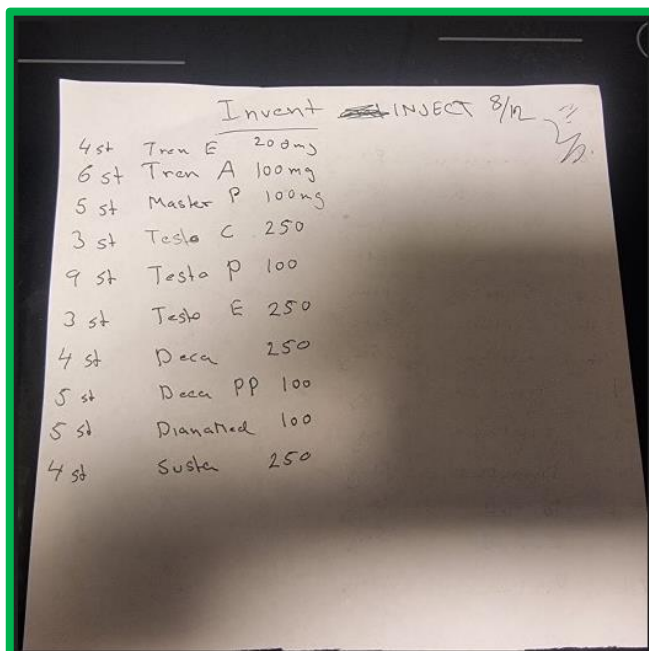 Invent INJECT 8/12
4 st Tren E 200mg
6 st Tren A 100mg
5 st Master P 100mg
3 st Testo C 250
9 st Testo P 100
3 st Testo E 250
4 st Deca 250
5 st Deca PP 100
5 st DianaMed 100
4 st Susta 250